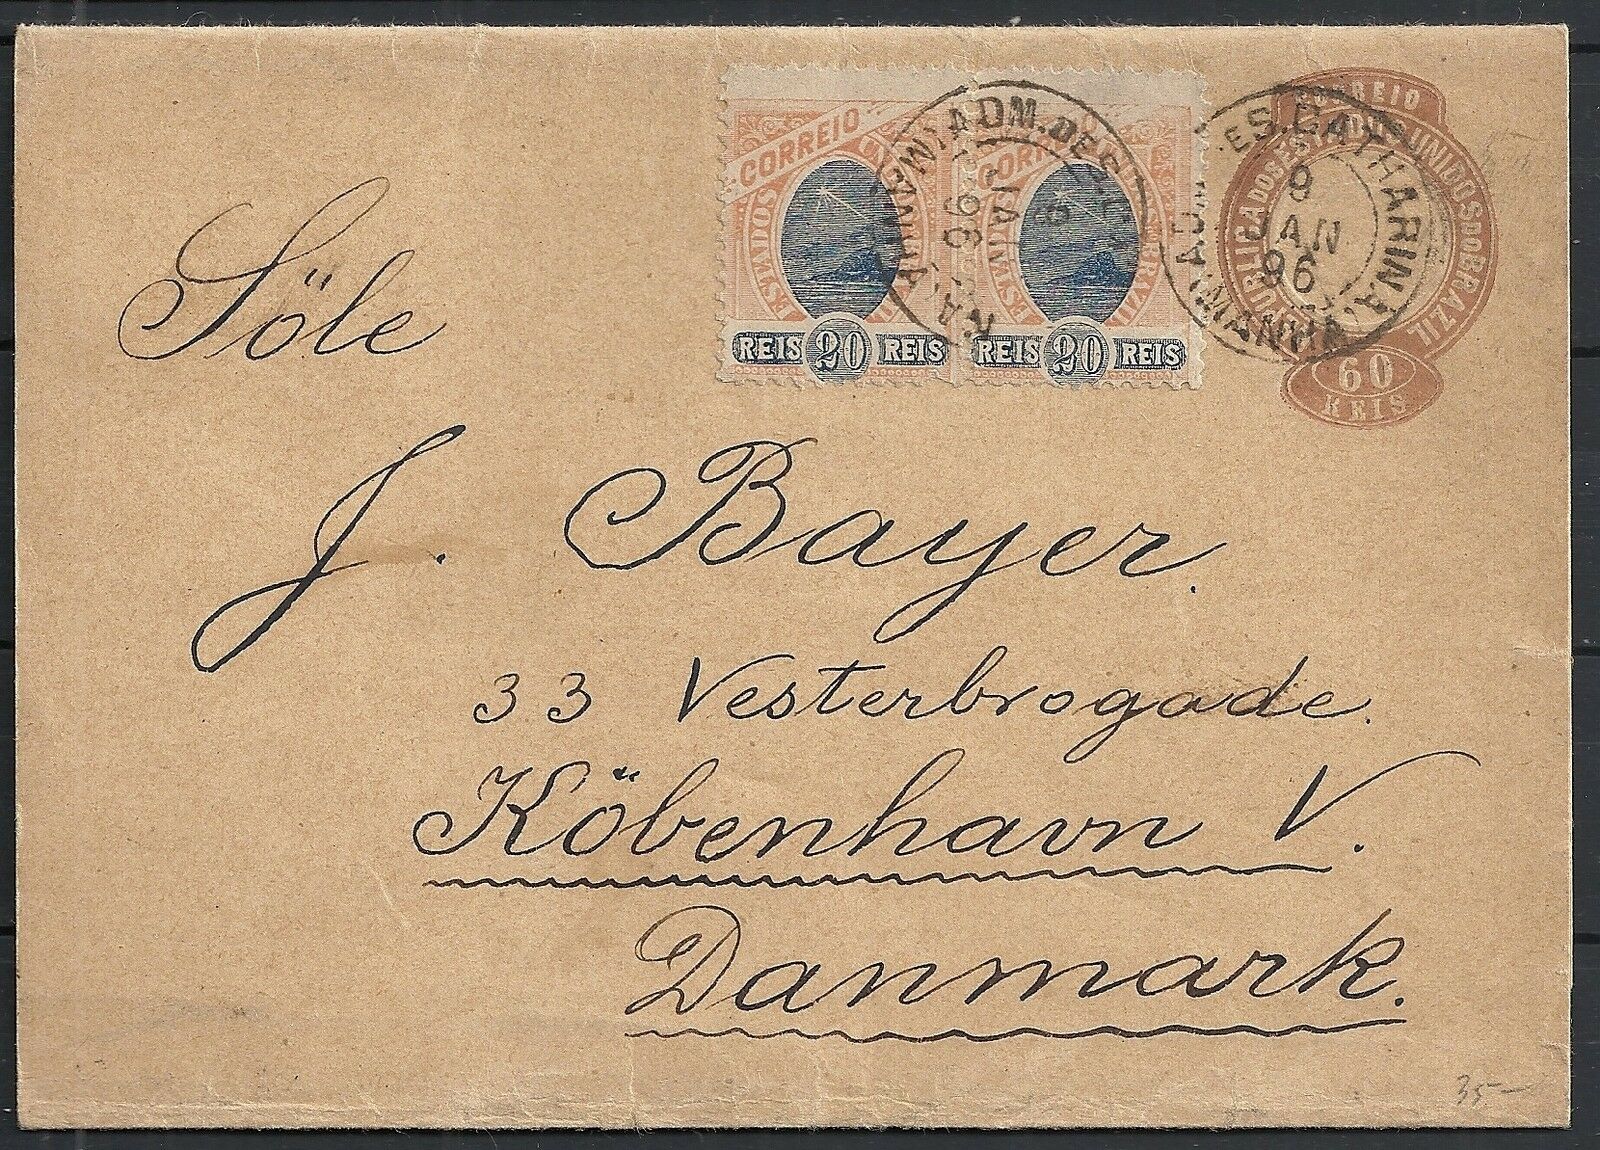 CORREIO
ESTADOS UNIDOS DO BRAZIL
60
REIS
CORREIO
ESTADOS
REIS 20 REIS
REIS 20 REIS
ADM. DE S.
MANHÃ
96
JAN
ADM. DE S. CATHARINA
9
JAN
96
MANHÃ
Söle
J. Bayer.
33 Vesterbrogade.
Köbenhavn V.
Danmark.
35-